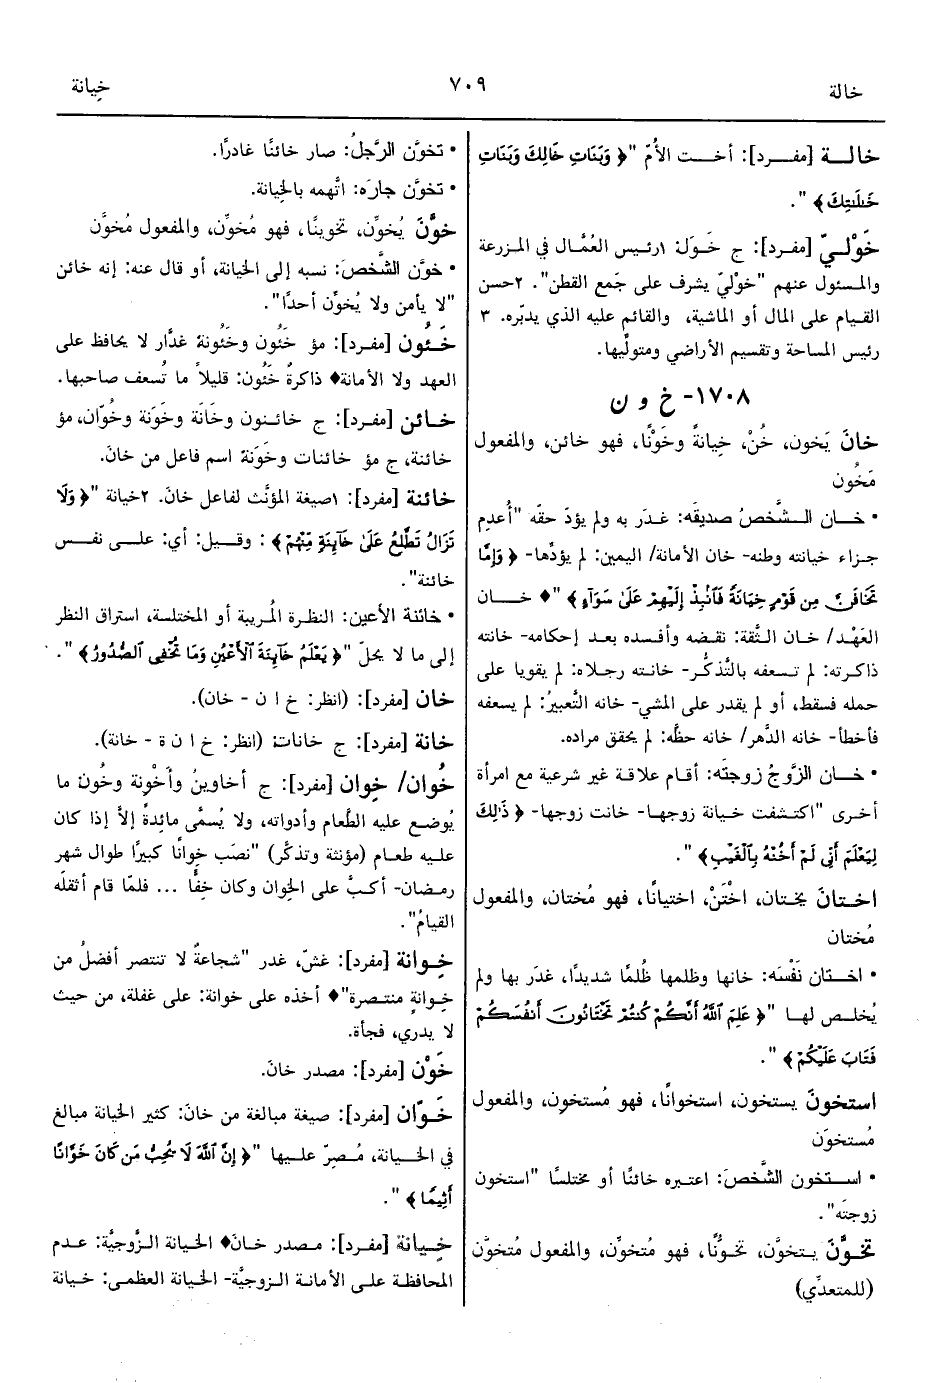 خالة
٧٠٩
خِيانة
خالــة [مفــرد]: أخــت الأُمّ "﴿ وَبَنَاتِ خَالِكَ وَبَنَاتِ
خَـٰلَـٰتِكَ ﴾ ".
خَوْليّ [مفرد]: ج خَوَل: ١رئيس العُمَّال في المزرعة
والمسئول عنهم "خوْليّ يشرف على جَمع القطن". ٢حسن
القيام على المال أو الماشية، والقائم عليه الذي يدبّره. ٣
رئيس المساحة وتقسيم الأراضي ومتولِّيها.
١٧٠٨- خ و ن
خانَ يَخون، خُنْ، خِيانةً وخَوْنًا، فهو خائن، والمفعول
مَخُون
• خــان الـشَّخصُ صديقَه: غدَر به ولم يؤدّ حقّه "أُعدِم
جزاء خيانته وطنه- خان الأمانة/ اليمين: لم يؤدِّها- ﴿ وَإِمَّا
تَخَافَنَّ مِن قَوْمٍ خِيَانَةً فَٱنۢبِذْ إِلَيْهِمْ عَلَىٰ سَوَآءٍ ﴾ "♦ خــان
العَهْد/ خان الثِّقة: نقضه وأفسده بعد إحكامه- خانته
ذاكرته: لم تسعفه بالتَّذكُّر- خانته رجلاه: لم يقويا على
حمله فسقط، أو لم يقدر على المشي- خانه التَّعبيرُ: لم يسعفه
فأخطأ- خانه الدَّهر/ خانه حظُّه: لم يحقق مراده.
• خـان الزَّوجُ زوجتَه: أقام علاقة غير شرعية مع امرأة
أخرى "اكتشفت خيانة زوجها- خانت زوجها- ﴿ ذَٰلِكَ
لِيَعْلَمَ أَنِّي لَمْ أَخُنْهُ بِٱلْغَيْبِ ﴾ ".
اختانَ يختان، اخْتَنْ، اختيانًا، فهو مُختان، والمفعول
مُختان
• اختان نَفْسَه: خانها وظلمها ظُلمًا شديدًا، غدَر بها ولم
يُخلـص لهـا "﴿ عَلِمَ ٱللَّهُ أَنَّكُمْ كُنتُمْ تَخْتَانُونَ أَنفُسَكُمْ
فَتَابَ عَلَيْكُمْ ﴾ ".
استخونَ يستخون، استخوانًا، فهو مُستخوِن، والمفعول
مُستخوَن
• اسـتخون الشَّخصَ: اعتبره خائنًا أو مختلسًا "استخون
زوجتَه".
تخوَّنَ يـتخوَّن، تخـوُّنًا، فهو مُتخوِّن، والمفعول مُتخوَّن
(للمتعدِّي)
• تخوَّن الرَّجلُ: صار خائنًا غادرًا.
• تخوَّن جارَه: اتَّهمه بالخِيانة.
خوَّنَ يُخوِّن، تخوينًا، فهو مُخوِّن، والمفعول مُخوَّن
• خوَّن الشَّخصَ: نسبه إلى الخيانة، أو قال عنه: إنه خائن
"لا يأمن ولا يُخوِّن أحدًا".
خَئُون [مفرد]: مؤ خَئُون وخَئُونة: غدَّار لا يحافظ على
العهد ولا الأمانة♦ ذاكرةٌ خَئُون: قليلاً ما تُسعف صاحبها.
خـائن [مفـرد]: ج خائـنون وخَانَة وخَوَنة وخُوَّان، مؤ
خائنة، ج مؤ خائنات وخَوَنة: اسم فاعل من خانَ.
خائنة [مفرد]: ١صيغة المؤنَّث لفاعل خانَ. ٢خيانة "﴿ وَلَا
تَزَالُ تَطَّلِعُ عَلَىٰ خَآئِنَةٍ مِّنْهُمْ ﴾ : وقـيل: أي: علـى نفس
خائنة".
• خائنة الأعين: النظرة المُريبة أو المختلسة، استراق النظر
إلى ما لا يحلّ "﴿ يَعْلَمُ خَآئِنَةَ ٱلْأَعْيُنِ وَمَا تُخْفِى ٱلصُّدُورُ ﴾ ".
خان [مفرد]: (انظر: خ ا ن - خان).
خانة [مفرد]: ج خانات: (انظر: خ ا ن ة - خانة).
خُوان/ خِوان [مفرد]: ج أخاوينُ وأَخْوِنة وخُون: ما
يُوضـع عليه الطَّعام وأدواته، ولا يُسمَّى مائِدةً إلاَّ إذا كان
عليـه طعـام (مؤنثة وتذكَّر) "نصَب خِوانًا كبيرًا طوال شهر
رمضان- أكبَّ على الخِوان وكان خِفًّا ... فلمّا قام أثقلَه
القيامُ".
خِـوانة [مفرد]: غشّ، غدر "شجاعةٌ لا تنتصر أفضلُ من
خِوانةٍ منتصرة"♦ أخذه على خوانة: على غفلة، من حيث
لا يدري، فجأة.
خَوْن [مفرد]: مصدر خانَ.
خَـوَّان [مفرد]: صيغة مبالغة من خانَ: كثير الخيانة مبالغ
في الخـيانة، مُـصِرّ علـيها "﴿ إِنَّ ٱللَّهَ لَا يُحِبُّ مَن كَانَ خَوَّانًا
أَثِيمًا ﴾ ".
خِـيانة [مفرد]: مـصدر خـانَ♦ الخيانة الـزَّوجيَّة: عـدم
المحافظة علـى الأمانة الـزوجيَّة- الخيانة العظمى: خـيانة